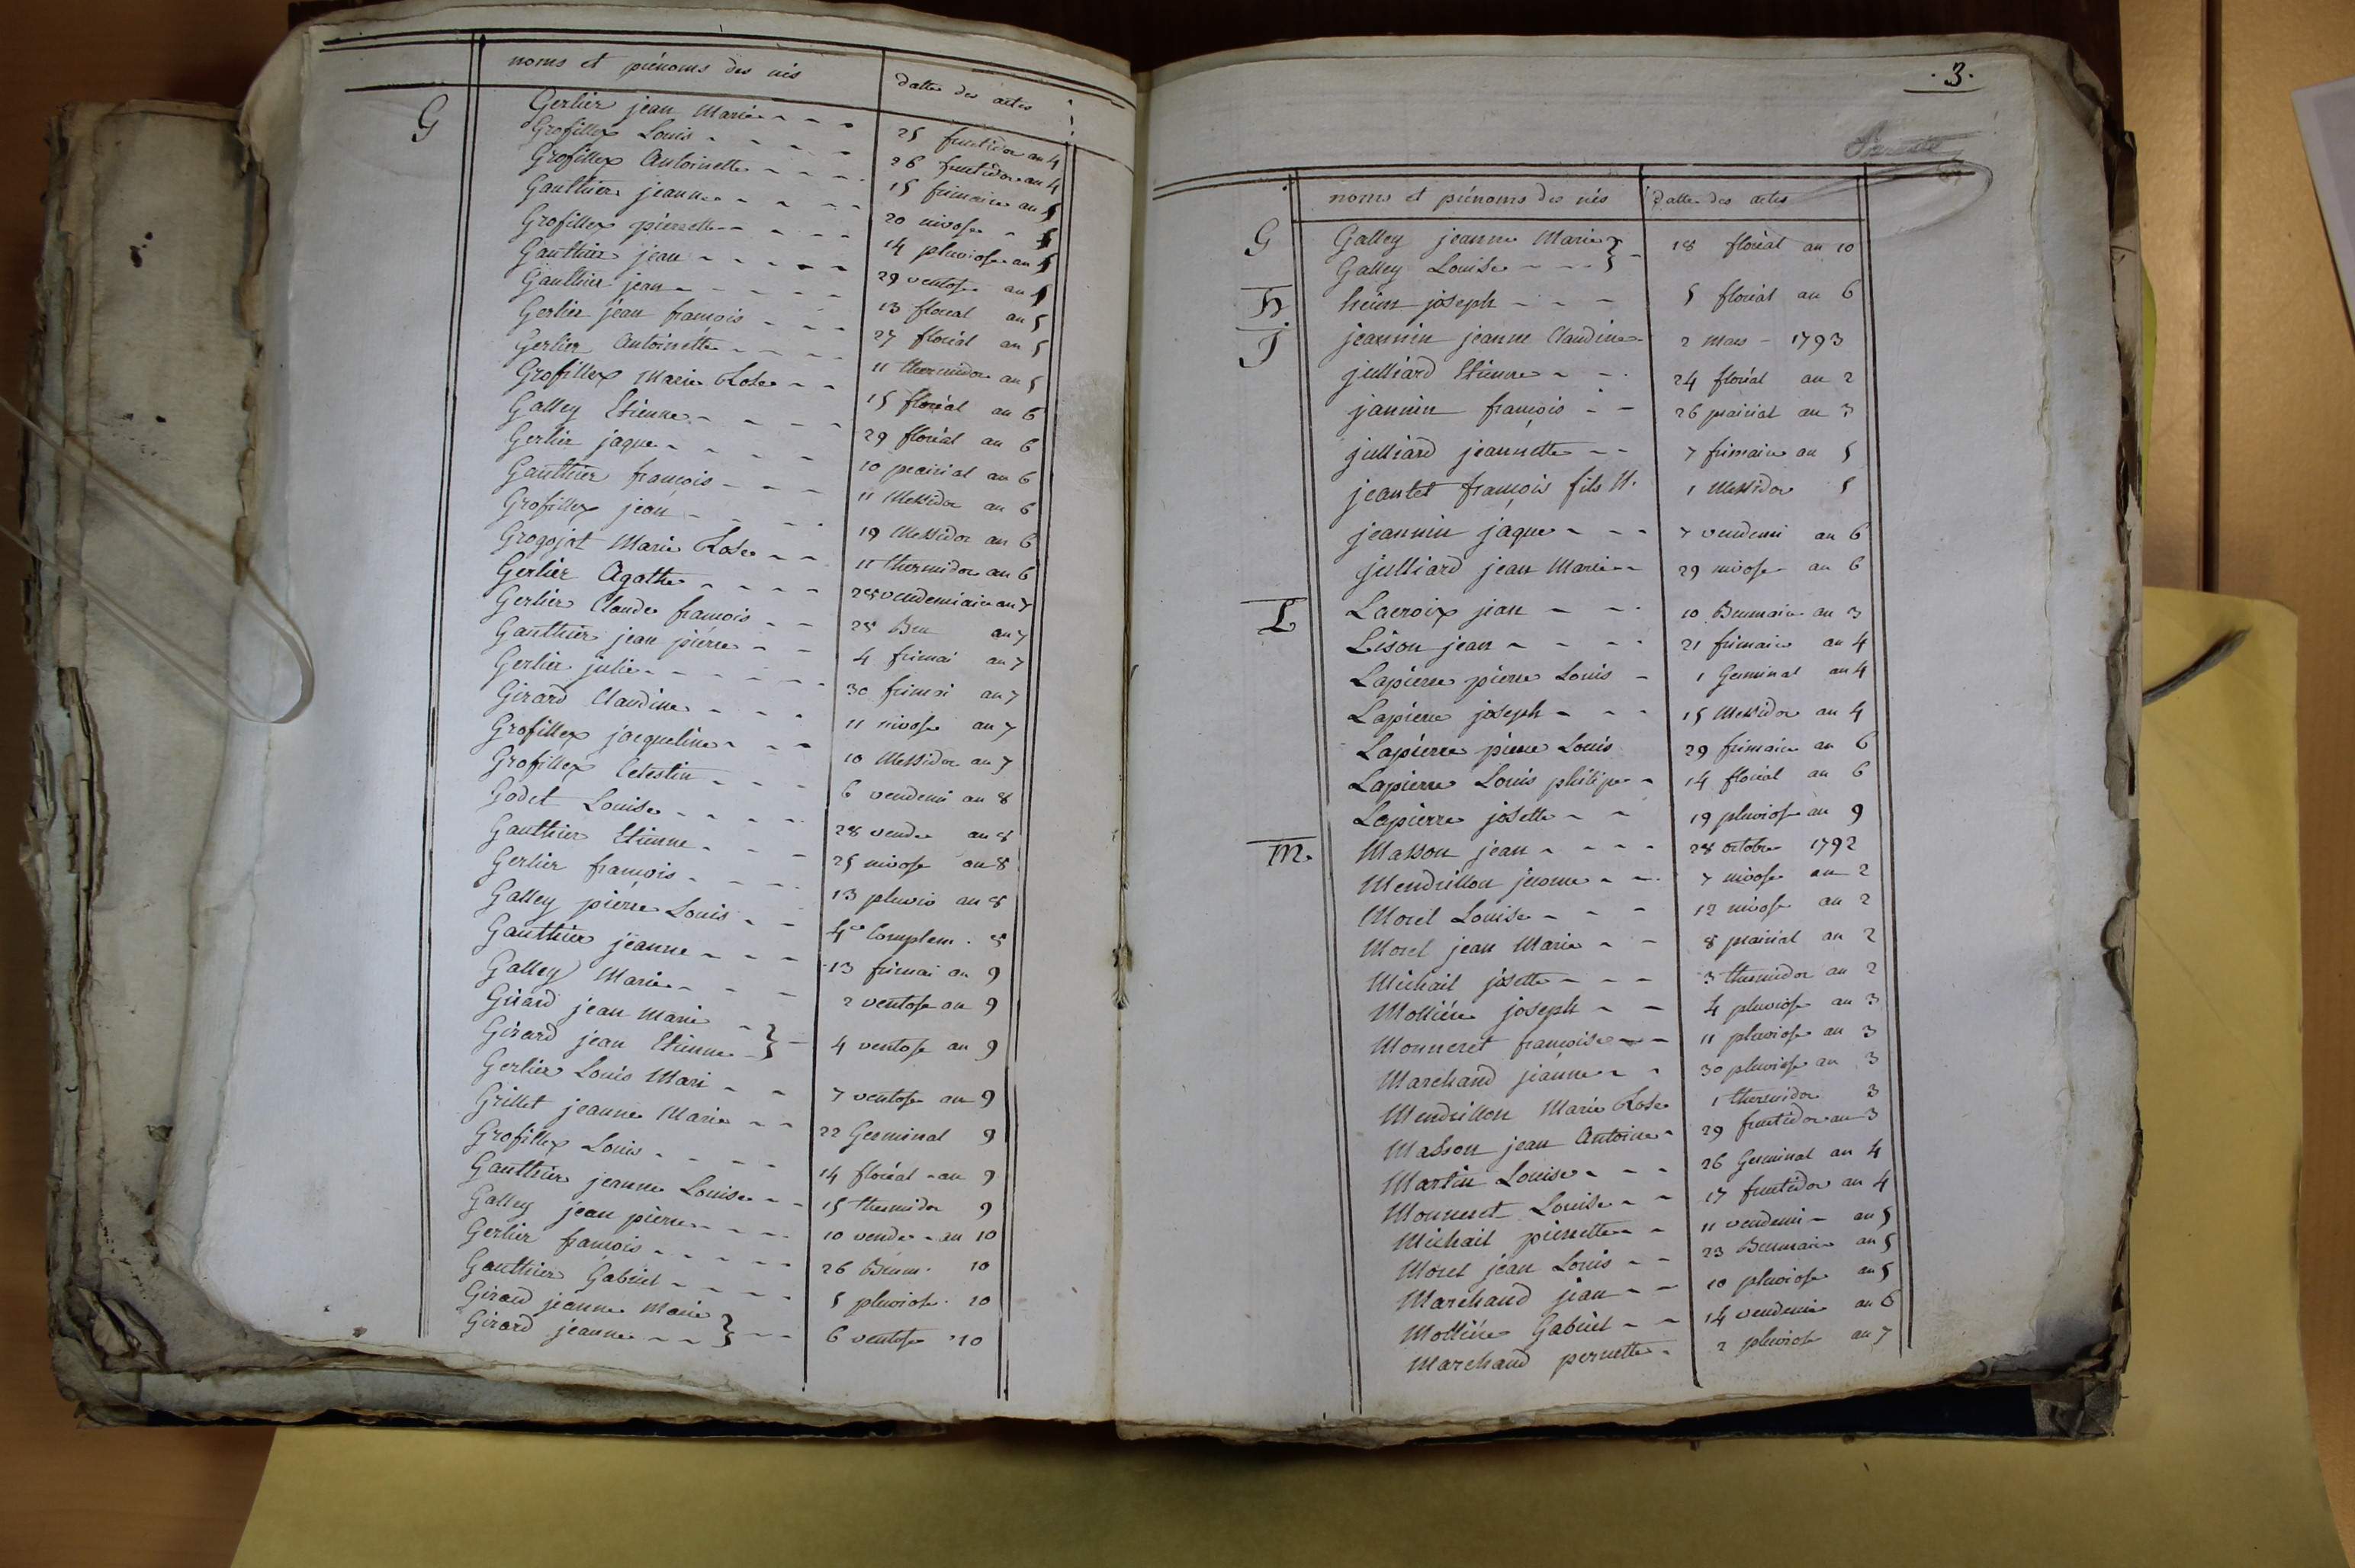 noms et prénoms des nés datte des actes
G
Gerlier jean Marie 25 fructidor an 4
Grofillex Louis 26 fructidor an 4
Grofillex Antoinette 15 frimaire an 5
Gauthier jeanne 20 nivose 5
Grofillex pierrette 14 pluviose an 5
Gauthier jean 29 ventose an 5
Gauthier jean 13 floréal an 5
Gerlier jean françois 27 floréal an 5
Gerlier Antoinette 11 thermidor an 5
Grofillex Marie Rose 15 floréal an 6
Galley Etienne 29 floréal an 6
Gerlier jaque 10 prairial an 6
Gauthier françois 11 Messidor an 6
Grofillex jean 19 Messidor an 6
Grogojat Marie Rose 11 thermidor an 6
Gerlier Agathe 28 vendemiaire an 7
Gerlier Claude françois 28 Bru an 7
Gauthier jean pierre 4 frimai an 7
Gerlier julie 30 frimai an 7
Girard Claudine 11 nivose an 7
Grofillex jacqueline 10 Messidor an 7
Grofillex Celestin 6 vendemi an 8
Godet Louise 28 vende an 8
Gauthier Etienne 25 nivose an 8
Gerlier françois 13 pluvio an 8
Galley pierre Louis 4e Complem. 8
Gauthier jeanne 13 frimai an 9
Galley Marie 2 ventose an 9
Girard jean Marie
Girard jean Etienne } 4 ventose an 9
Gerlier Louis Mari 7 ventose an 9
Grillet jeanne Marie 22 Germinal 9
Grofillex Louis 14 floréal an 9
Gauthier jeanne Louise 15 thermidor 9
Galley jean pierre 10 vende an 10
Gerlier françois 26 Brum. 10
Gauthier Gabriel 5 pluviose 10
Girard jeanne Marie
Girard jeanne } 6 ventose 10
.3.
noms et prénoms des nés datte des actes
G Galley jeanne Marie }
Galley Louise 18 floréal an 10
H. heim joseph 5 floréal an 6
J jeannin jeanne Claudine 2 mars 1793
julliard Etienne 24 floréal an 2
jannin françois 26 prairial an 3
julliard jeannette 7 frimaire an 5
jeantet françois fils N. 1 Messidor 5
jeannin jaque 7 vendemi an 6
julliard jean Marie 29 nivose an 6
L Lacroix jean 10 Brumaire an 3
Lison jean 21 frimaire an 4
Lapierre pierre Louis 1 Germinal an 4
Lapierre joseph 15 Messidor an 4
Lapierre pierre Louis 29 frimaire an 6
Lapierre Louis philipe 14 floréal an 6
Lapierre josette 19 pluviose an 9
M. Masson jean 28 octobre 1792
Mendrillon jerome 7 nivose an 2
Morel Louise 12 nivose an 2
Morel jean Marie 8 prairial an 2
Michail josette 3 thermidor an 2
Mottière joseph 4 pluviose an 3
Monneret françoise 11 pluviose an 3
Marchand jeanne 30 pluviose an 3
Mendrillon Marie Rose 1 thermidor 3
Masson jean Antoine 29 fructidor an 3
Martin Louise 26 Germinal an 4
Monneret Louise 17 fructidor an 4
Michail pierrette 11 vendemi an 5
Morel jean Louis 23 Brumaire an 5
Marchand jean 10 pluviose an 5
Mottière Gabriel 14 vendemi an 6
Marchand pernette 2 pluviose an 7